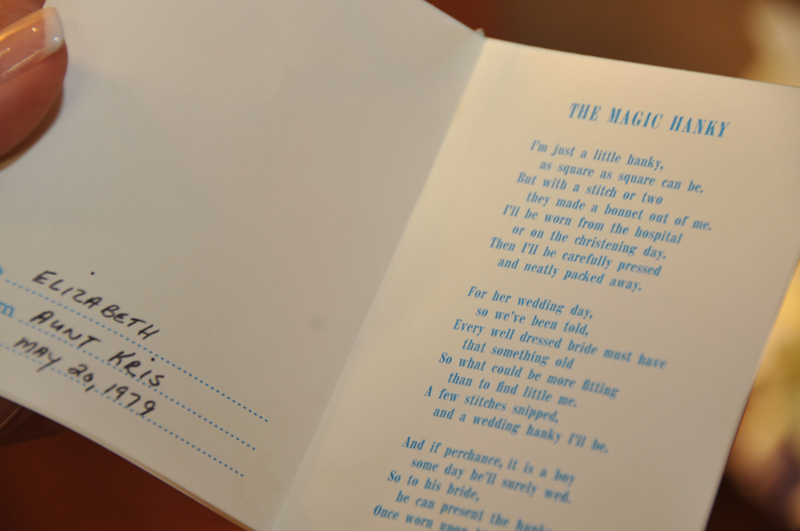 ELIZABETH
m AUNT KRIS
MAY 20, 1979
THE MAGIC HANKY
I'm just a little hanky,
as square as square can be.
But with a stitch or two
they made a bonnet out of me.
I'll be worn from the hospital
or on the christening day.
Then I'll be carefully pressed
and neatly packed away.
For her wedding day,
so we've been told,
Every well dressed bride must have
that something old
So what could be more fitting
than to find little me.
A few stitches snipped,
and a wedding hanky I'll be.
And if perchance, it is a boy
some day he'll surely wed.
So to his bride,
he can present the hanky
Once worn upon